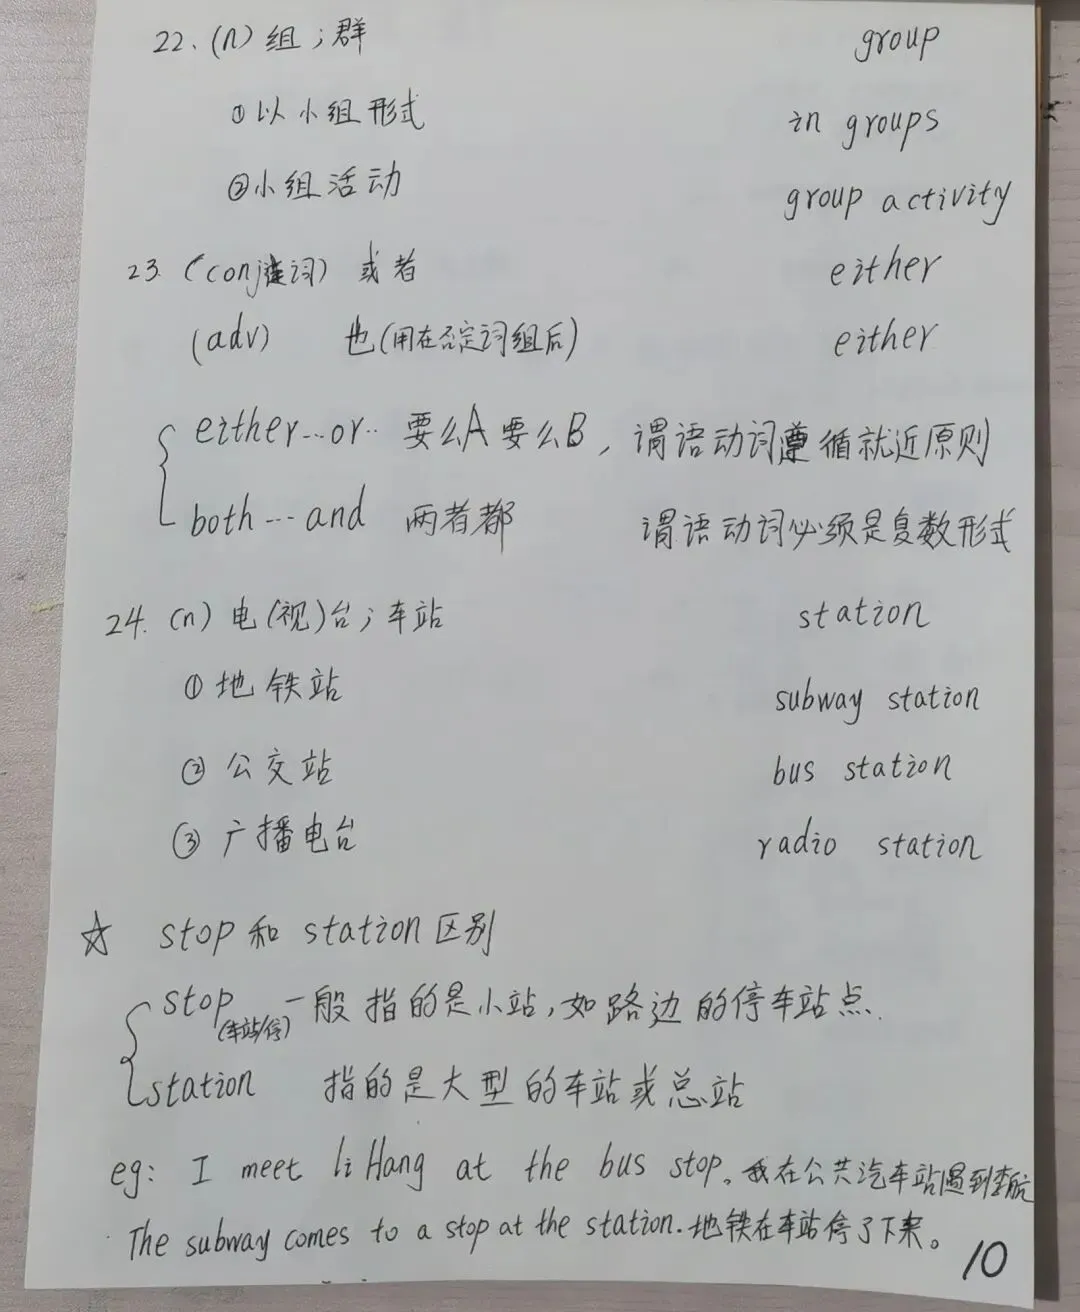 22. (n) 组；群 group
①以小组形式 in groups
②小组活动 group activity
23. (conj连词) 或者 either
(adv) 也(用在否定词组后) either
either…or… 要么A要么B，谓语动词遵循就近原则
both…and 两者都 谓语动词必须是复数形式
24. (n) 电(视)台；车站 station
①地铁站 subway station
②公交站 bus station
③广播电台 radio station
☆ stop和station区别
stop 一般指的是小站，如路边的停车站点.
(车站/停)
station 指的是大型的车站或总站
eg: I meet li Hang at the bus stop。我在公共汽车站遇到李航
The subway comes to a stop at the station.地铁在车站停了下来。
10